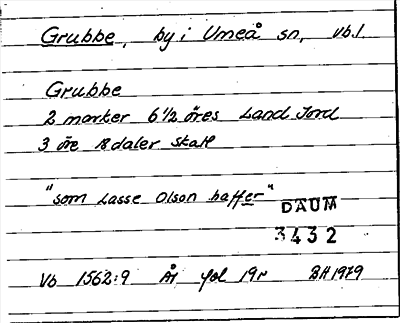 Grubbe, by i Umeå sn, vb.l.
Grubbe
2 marker 6 1/2 öres Land Jord
3 öre 18 daler skatt
"som Lasse Olson haffer"
DAUM
3432
Vb 1562:9 År fol 19r BH 1979